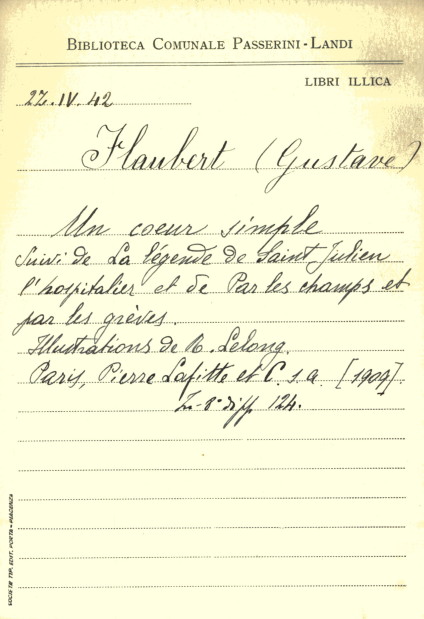 BIBLIOTECA COMUNALE PASSERINI-LANDI
LIBRI ILLICA
22.IV.42
Flaubert (Gustave)
Un coeur simple
suivi de La légende de Saint Julien
l'hospitalier et de Par les champs et
par les grèves.
Illustrations de R. Lelong.
Paris, Pierre Lafitte et C. s.a. [1909].
8° diff 124.
SOCIETÀ TIP. EDIT. PORTA - PIACENZA